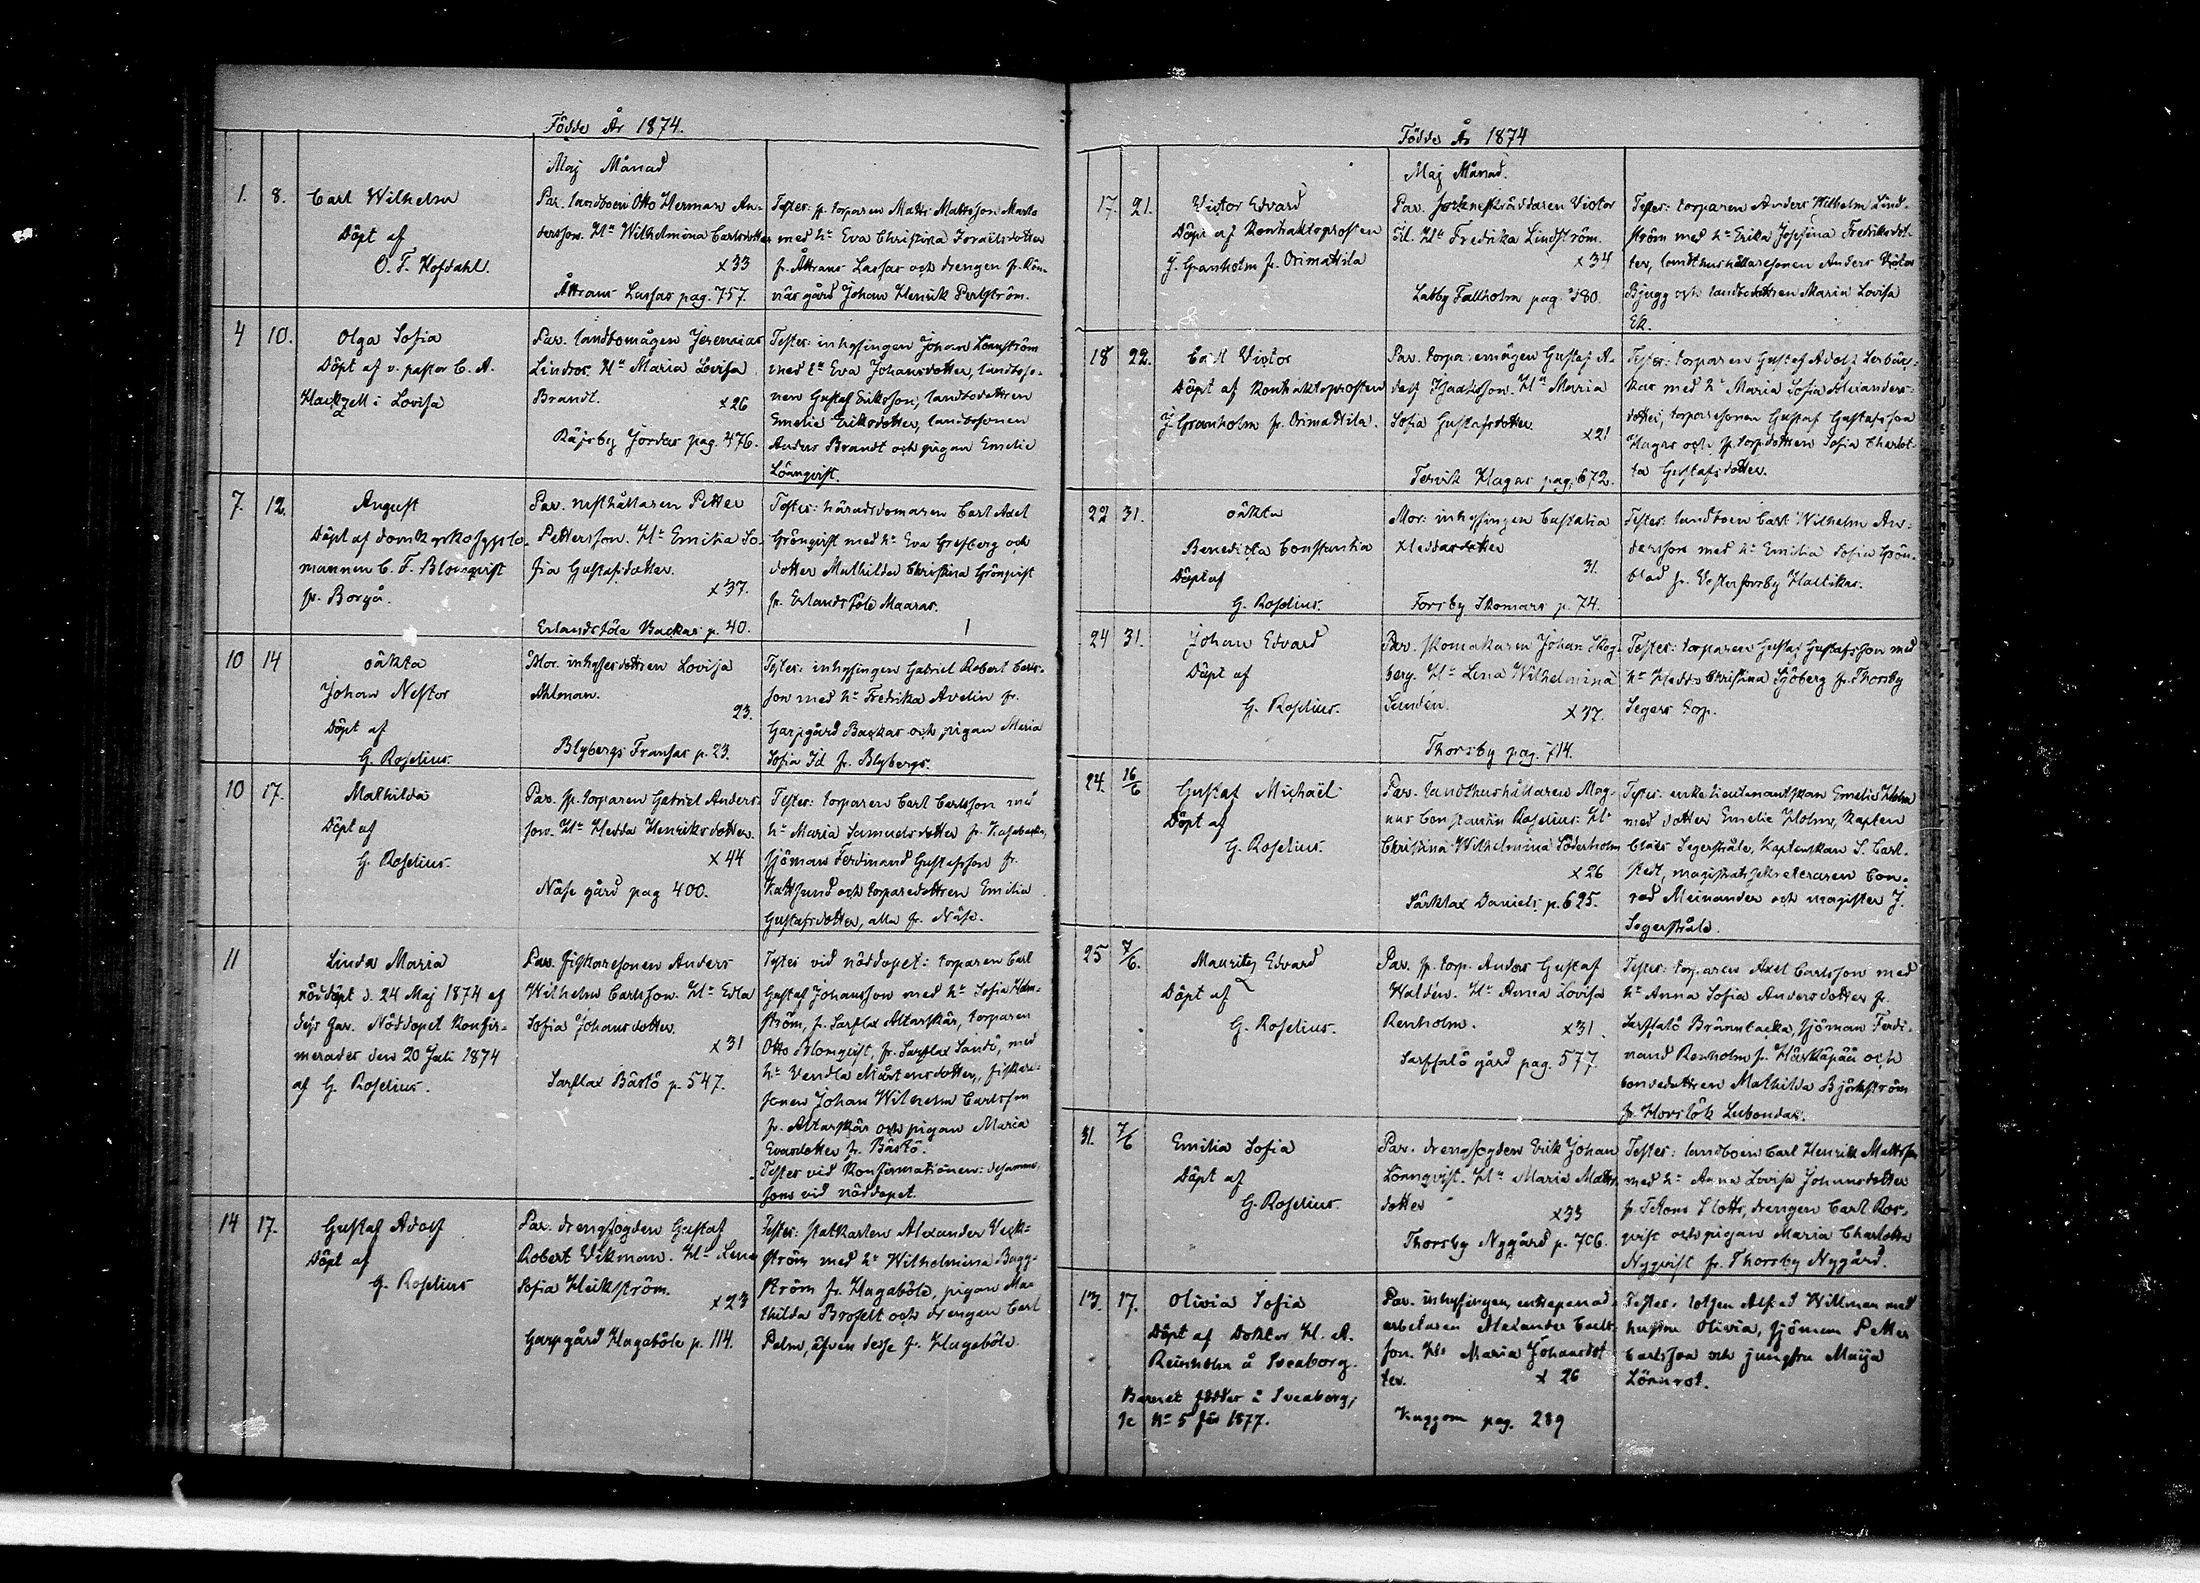 Födde År 1874.
Maj Månad
1. 8. Carl Wilhelm
Döpt af
O. F. Hofdahl.
Par. landboen Otto Herman An-
dersson. H:u Wilhelmina Carlsdotter
x33
Åttrans Lassas pag. 757.
Testes: sp. torparen Matts Mattsson
med h: Eva Christina Israelsdotter
fr. Åttrans Lassas och drengen fr. Rön-
näs gård Johan Henrik Perlström.
4 10. Olga Sofia
Döpt af v. pastor C. A.
i Lovisa
Par. landbomågen Jeremias
Lindros. H:u Maria Lovisa
Brandt.
x26
Räfsby Jordas pag. 476.
Testes: inhysingen Johan Lönnström
med h: Eva Johansdotter, landboso-
nen Gustaf Eriksson, landbodottren
Emelie Eriksdotter, landbosonen
Anders Brandt och pigan Emelie
Lönnqvist.
7. 12. August
Döpt af domkyrkosysslo-
mannen C. F. Blomqvist
fr. Borgå.
Par. rusthållaren Petter
Pettersson. H:u Emilia So-
fia Gustafsdotter.
x37.
Erlandsböle Backas p. 40.
Testes: häradsdomaren Carl Axel
Grönqvist med h: Eva Gresberg och
dotter Mathilda Christina Grönqvist
fr. Erlandsböle Maaras.
10 14 oäkta
Johan Nestor
Döpt af
G. Roselius.
Mor. inhysesdottren Lovisa
Ahlman.
23.
Blybergs Fransas p. 23.
Testes: inhysingen Gabriel Robert Carls-
son med h: Fredrika Avelin fr.
Garpgård Backas och pigan Maria
Sofia Id fr. Blybergs.
10 17. Mathilda
Döpt af
G. Roselius.
Par. sp. torparen Gabriel Anders-
son. H:u Hedda Henriksdotter.
x44
Näse gård pag 400.
Testes: torparen Carl Carlsson med
h: Maria Samuelsdotter fr.
sjöman Ferdinand Gustafsson fr.
Kattsund och torparedottren Emilia
Gustafsdotter, alla fr. Näse.
11 Linda Maria
nöddöpt d. 24 Maj 1874 af
dess far. Nöddopet konfir-
merades den 20 Juli 1874
af G. Roselius.
Par. fiskaresonen Anders
Wilhelm Carlsson. H:u Edla
Sofia Johansdotter.
x31
Sarflax Bästö p. 547.
Testes vid nöddopet: torparen Carl
Gustaf Johansson med h: Sofia Holm-
ström, fr. Sarflax Altarskär, torparen
Otto Blomqvist, fr. Sarflax Sandö, med
h: Vendla Mårtensdotter, fiskare-
sonen Johan Wilhelm Carlsson
fr. Altarskär och pigan Maria
Evasdotter fr. Bästö.
Testes vid konfirmationen: desamma
som vid nöddopet.
14 17. Gustaf Adolf
Döpt af
G. Roselius
Par. drengfogden Gustaf
Robert Vikman. H:u Lena
Sofia Heikström.
x23
Garpgård Hagaböle p. 114.
Testes: statkarlen Alexander Veck-
ström med h: Wilhelmina Bagg-
ström fr. Hagaböle, pigan Ma-
thilda Brofelt och drengen Carl
Palm, äfven desse fr. Hagaböle.
Födde År 1874
Maj Månad.
17. 21. Victor Edvard
Döpt af Kontraktsprosten
J. Granholm fr. Orimattila
Par. sockneskräddaren Victor
Til. H:u Fredrika Lindström.
x34
Labby Fallholm pag. 380.
Testes: torparen Anders Wilhelm Lind-
ström med h: Erika Josefina Fredriksdot-
ter, landthushållaresonen Anders Victor
Bjugg och landbodottren Maria Lovisa
Ek.
18 22. Carl Victor
Döpt af Kontraktsprosten
J. Granholm fr. Orimattila.
Par. torparemågen Gustaf A-
dolf Isaksson. H:u Maria
Sofia Gustafsdotter
x21
Tervik Hagas pag. 672.
Testes: torparen Gustaf Adolf
med h: Maria Sofia Alexanders-
dotter, torparesonen Gustaf Gustafsson
Hagas och sp. torpdottren Sofia Charlot-
ta Gustafsdotter.
22 31. oäkta
Benedicta Constantia
Döpt af
G. Roselius.
Mor: inhysingen Eustasia
Heddasdotter
31.
Forsby Skomars p. 74.
Testes: landboen Carl Wilhelm An-
dersson med h: Emilia Sofia Grön-
blad fr. Vesterforsby Hallikas.
24 31. Johan Edvard
Döpt af
G. Roselius.
Par. skomakaren Johan Skog-
berg. H:u Lena Wilhelmina
Lundén.
x37.
Thorsby pag. 714.
Testes: torparen Gustaf Gustafsson med
h: Hedda Christina Sjöberg fr. Thorsby
Segers torp.
24. 16/6 Gustaf Michaël
Döpt af
G. Roselius.
Par. landthushållaren Mag-
nus Constantin Roselius. H:u
Christina Wilhelmina Söderholm
x26
Särklax Daniels p. 625.
Testes: enkelieutenantskan Emelie Holm
med dotter Emelie Holm, kapten
Claës Segerstråle, kaptenskan S. Carl-
stedt, magistratssekreteraren Con-
rad Meinander och magister J.
Segerstråle.
25 7/6. Mauritz Edvard
Döpt af
G. Roselius.
Par. sp. torp. Anders Gustaf
Waldén. H:u Anna Lovisa
Renholm.
x31.
Sarfsalö gård pag. 577.
Testes: torparen Axel Carlsson med
h: Anna Sofia Andersdotter fr.
Sarfsalö Brännbacka, sjöman Ferdi-
nand Renholm fr. Härkäpää och
bondedottren Mathilda Björkström
fr. Horslök Lubondas.
31. 7/6 Emilia Sofia
Döpt af
G. Roselius.
Par. drengfogden Erik Johan
Lönnqvist. H:u Maria Matts-
dotter
x33
Thorsby Nygård p. 706.
Testes: landboen Carl Henrik Mattsson
med h: Anna Lovisa Johansdotter
fr. Tetoms Slotts, drengen Carl Ros-
qvist och pigan Maria Charlotta
Nyqvist fr. Thorsby Nygård.
13. 17. Olivia Sofia
Döpt af Doktor H. A.
Reinholm å Sveaborg.
Barnet födder å Sveaborg,
se N:o 5 för 1877.
Par. inhysingen, enkepenad-
arbetaren Alexander Carls-
son. H:u Maria Johansdot-
ter.
x 26
Kuggom pag. 289
Testes. lotsen Alfred Willman med
hustru Olivia, sjöman Petter
Carlsson och jungfru Maija
Lönnrot.